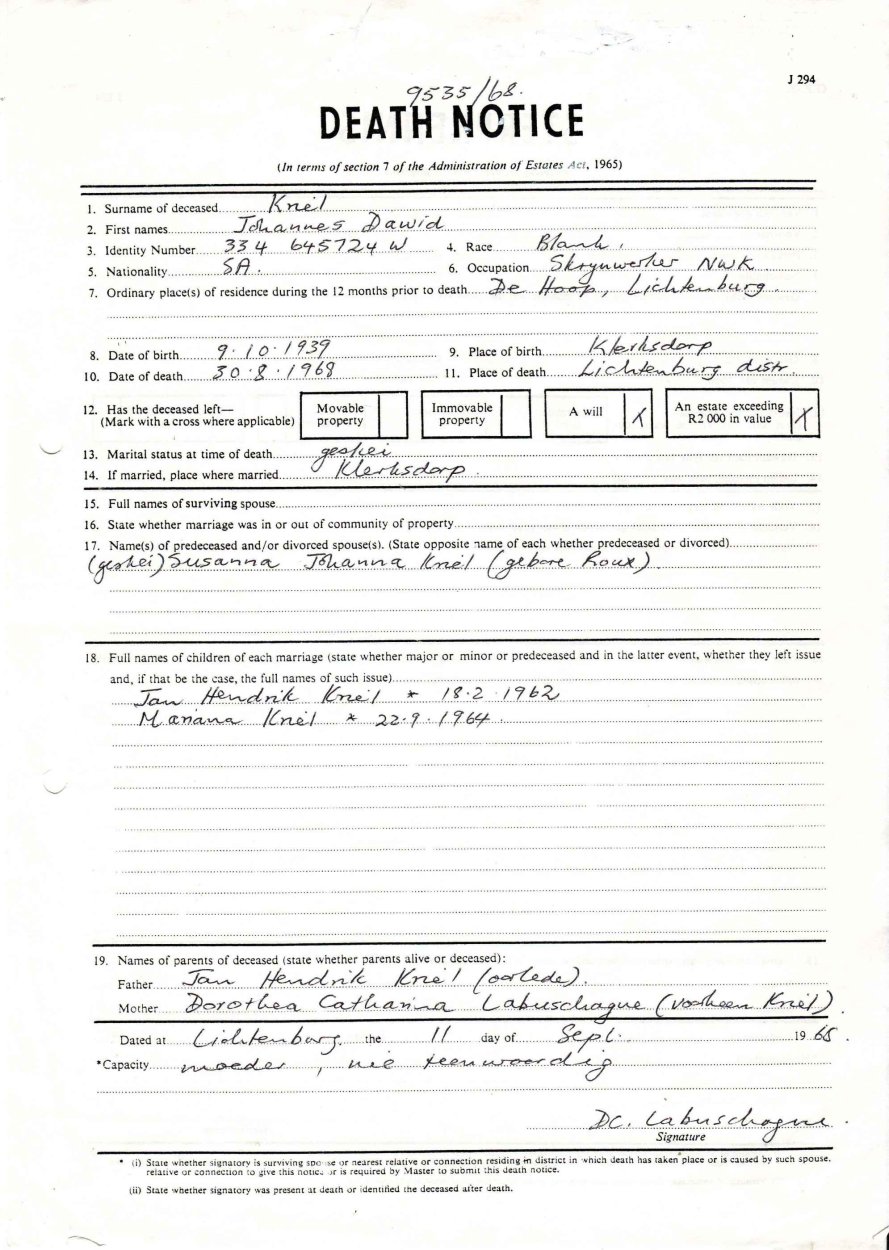 J 294
9535/68.
DEATH NOTICE
(In terms of section 7 of the Administration of Estates Act, 1965)
1. Surname of deceased Kriël
2. First names Johannes Dawid
3. Identity Number 334 645724 W 4. Race Blank.
5. Nationality SA. 6. Occupation Skrynwerker NWK
7. Ordinary place(s) of residence during the 12 months prior to death De Hoop, Lichtenburg.
8. Date of birth 9.10.1939 9. Place of birth Klerksdorp
10. Date of death 30.8.1968 11. Place of death Lichtenburg distr.
12. Has the deceased left— Movable Immovable A will X An estate exceeding X
(Mark with a cross where applicable) property property R2 000 in value
13. Marital status at time of death geskei
14. If married, place where married Klerksdorp.
15. Full names of surviving spouse
16. State whether marriage was in or out of community of property
17. Name(s) of predeceased and/or divorced spouse(s). (State opposite name of each whether predeceased or divorced)
(geskei) Susanna Johanna Kriël (gebore Roux)
18. Full names of children of each marriage (state whether major or minor or predeceased and in the latter event, whether they left issue
and, if that be the case, the full names of such issue)
Jan Hendrik Kriël * 18.2.1962
Mariana Kriël * 22.9.1964
19. Names of parents of deceased (state whether parents alive or deceased):
Father Jan Hendrik Kriël (oorlede).
Mother Dorothea Catharina Labuschagne (voorheen Kriël)
Dated at Lichtenburg. the 11 day of Sept. 1968.
*Capacity moeder, nie teenwoordig
DC. Labuschagne.
Signature
* (i) State whether signatory is surviving spouse or nearest relative or connection residing in district in which death has taken place or is caused by such spouse,
relative or connection to give this notice or is required by Master to submit this death notice.
(ii) State whether signatory was present at death or identified the deceased after death.